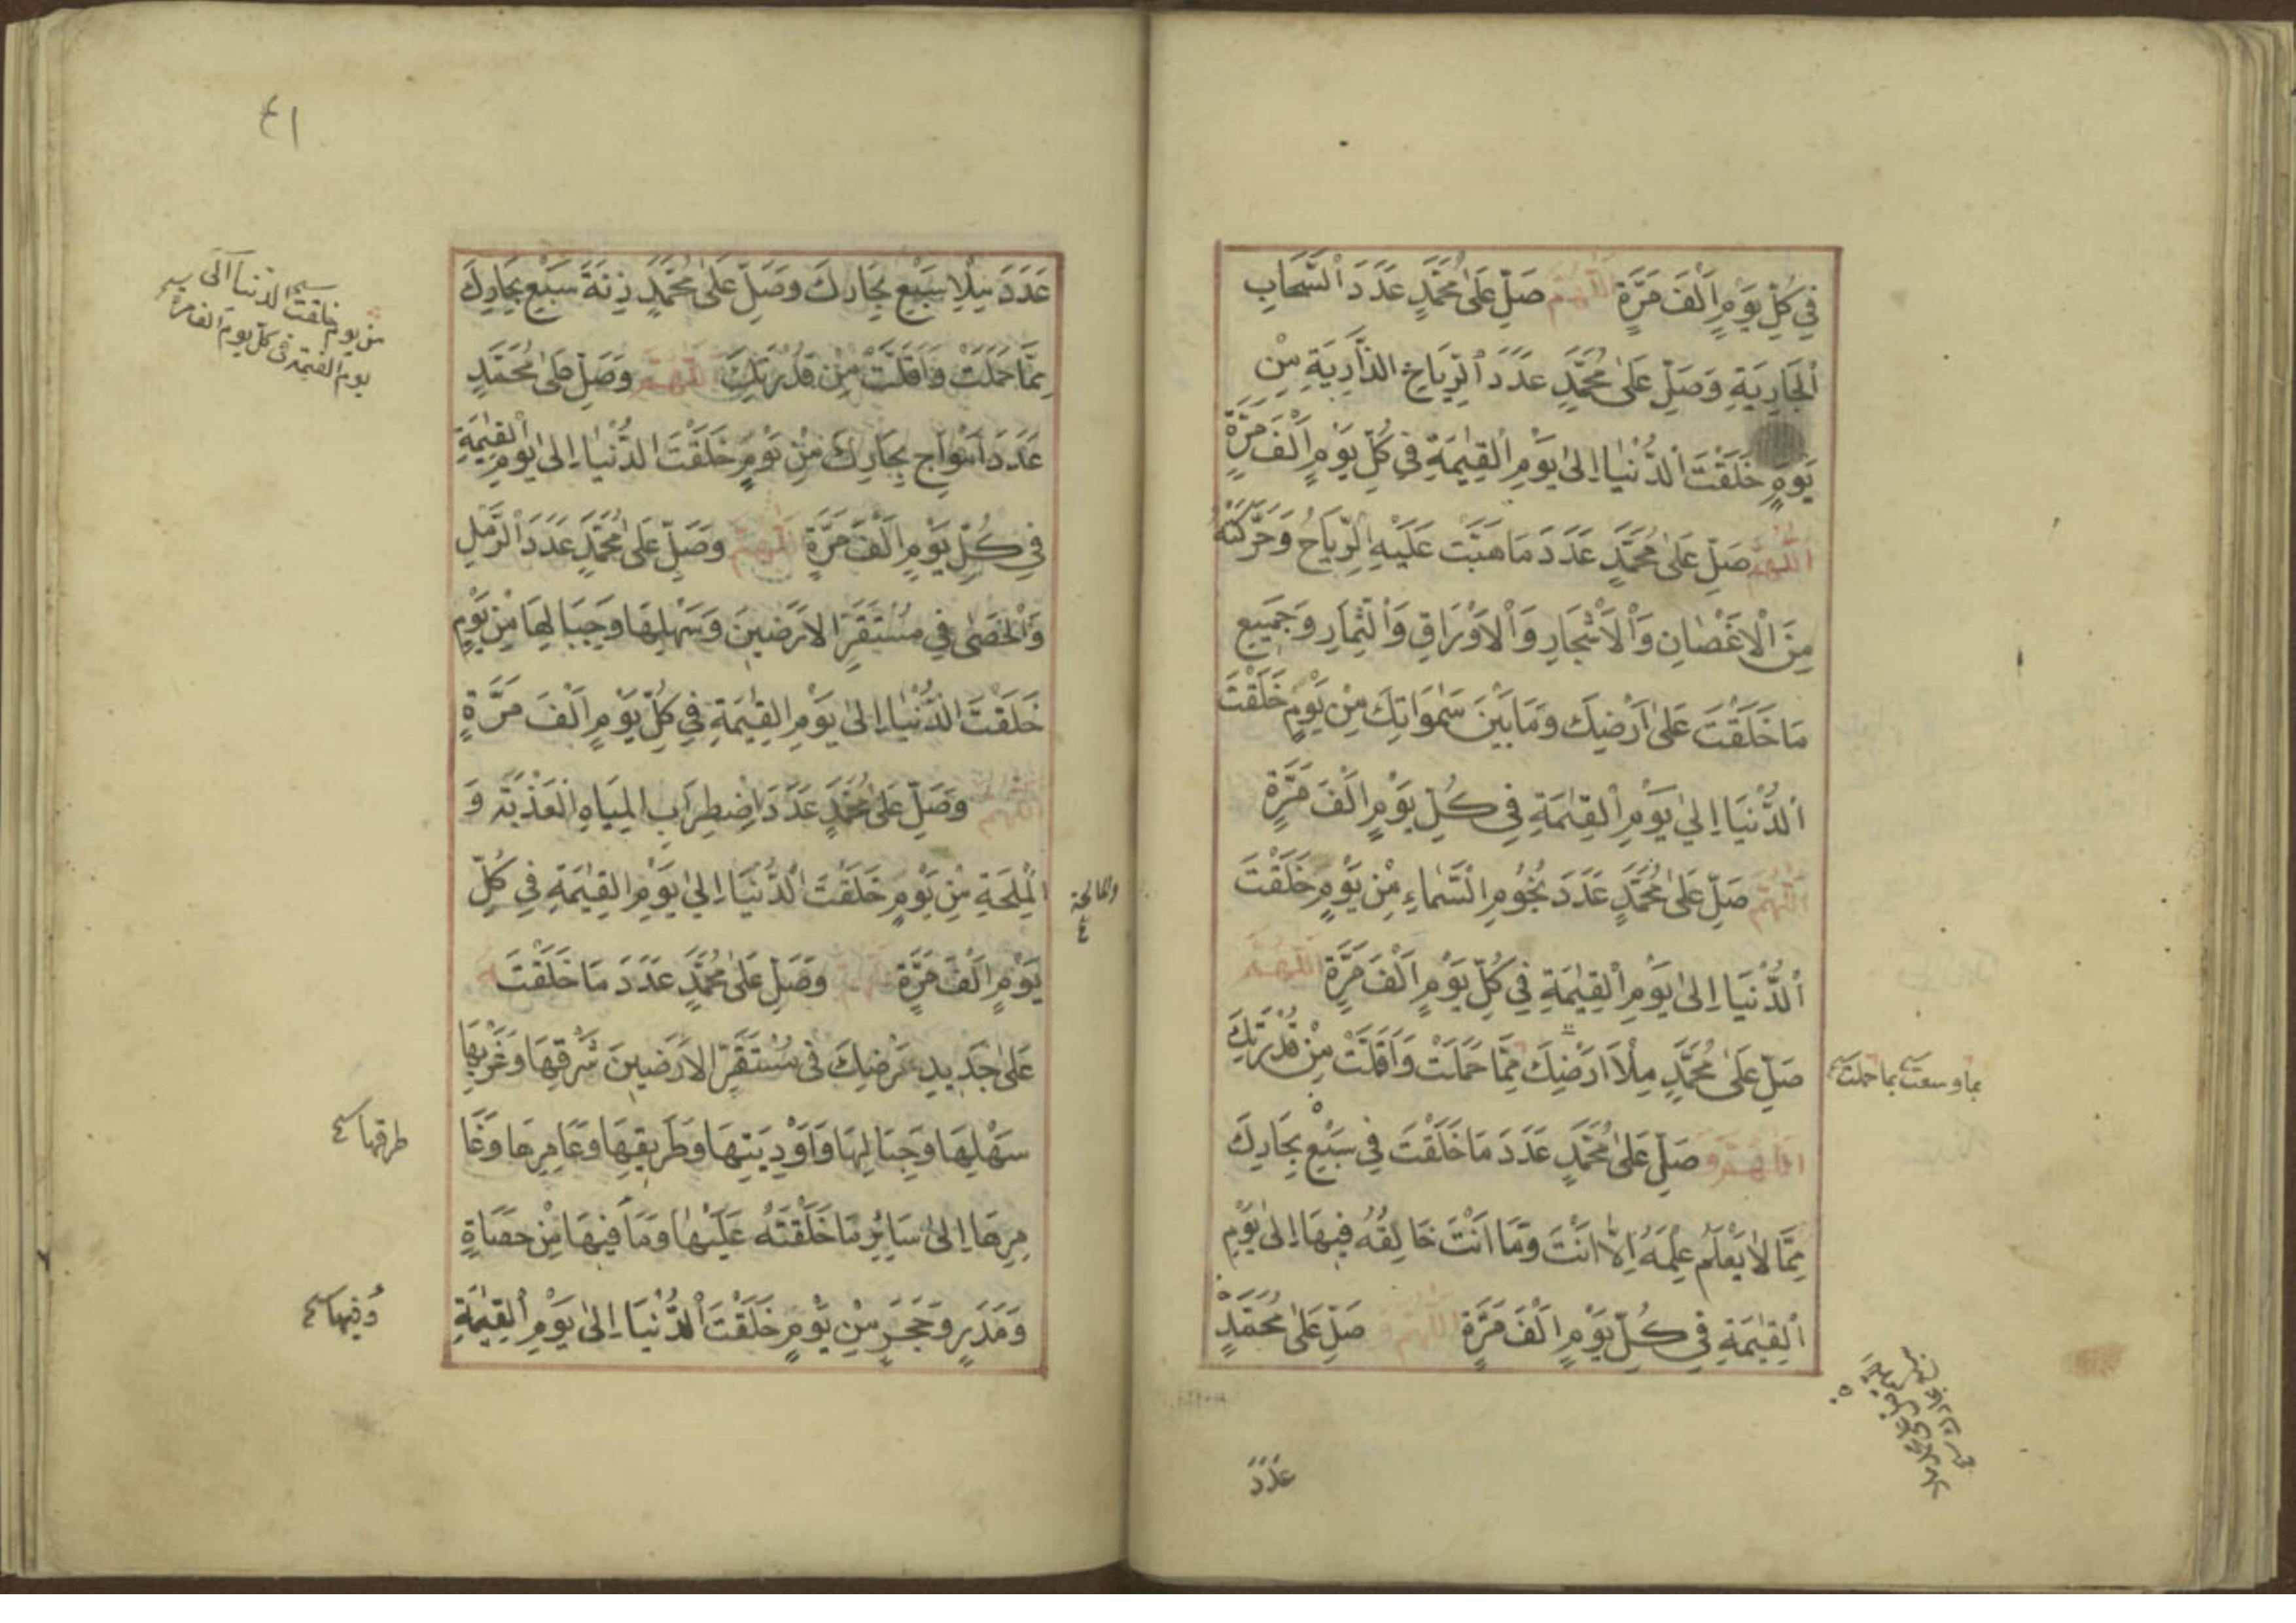 فِي كُلِّ يَوْمٍ اَلْفَ مَرَّةٍ اَللّٰهُمَّ صَلِّ عَلٰى مُحَمَّدٍ عَدَدَ السَّحَابِ
اَلْجَارِيَةِ وَصَلِّ عَلٰى مُحَمَّدٍ عَدَدَ الرِّيَاحِ الذَّارِيَةِ مِنْ
يَوْمِ خَلَقْتَ الدُّنْيَا اِلٰى يَوْمِ الْقِيٰمَةِ فِي كُلِّ يَوْمٍ اَلْفَ مَرَّةٍ
اَللّٰهُمَّ صَلِّ عَلٰى مُحَمَّدٍ عَدَدَ مَا هَبَّتْ عَلَيْهِ الرِّيَاحُ وَحَرَّكَتْهُ
مِنَ الْاَغْصَانِ وَالْاَشْجَارِ وَالْاَوْرَاقِ وَالثِّمَارِ وَجَمِيعِ
مَا خَلَقْتَ عَلٰى اَرْضِكَ وَمَا بَيْنَ سَمٰوَاتِكَ مِنْ يَوْمِ خَلَقْتَ
اَلدُّنْيَا اِلٰي يَوْمِ الْقِيٰمَةِ فِي كُلِّ يَوْمٍ اَلْفَ مَرَّةٍ
اَللّٰهُمَّ صَلِّ عَلٰى مُحَمَّدٍ عَدَدَ نُجُومِ السَّمَاءِ مِنْ يَوْمِ خَلَقْتَ
اَلدُّنْيَا اِلٰى يَوْمِ الْقِيٰمَةِ فِي كُلِّ يَوْمٍ اَلْفَ مَرَّةٍ اَللّٰهُمَّ
صَلِّ عَلٰى مُحَمَّدٍ مِلْاَ اَرْضِكَ مِمَّا حَمَلَتْ وَاَقَلَّتْ مِنْ قُدْرَتِكَ
بما وسعت بما حملت
اَللّٰهُمَّ وَ صَلِّ عَلٰى مُحَمَّدٍ عَدَدَ مَا خَلَقْتَ فِي سَبْعِ بِحَارِكَ
مِمَّا لَا يَعْلَمُ عِلْمَهُ اِلَّا اَنْتَ وَمَا اَنْتَ خَالِقُهُ فِيهَا اِلٰى يَوْمِ
اَلْقِيٰمَةِ فِي كُلِّ يَوْمٍ اَلْفَ مَرَّةٍ اَللّٰهُمَّ وَ صَلِّ عَلٰى مُحَمَّدٍ
عَدَدَ
٤١
عَدَدَ مِلْاِ سَبْعِ بِحَارِكَ وَصَلِّ عَلٰى مُحَمَّدٍ زِنَةَ سَبْعِ بِحَارِكَ
مِمَّا حَمَلَتْ وَاَقَلَّتْ مِنْ قُدْرَتِكَ اَللّٰهُمَّ وَصَلِّ عَلٰى مُحَمَّدٍ
من يوم خلقت الدنيا الى
يوم القيمة في كل يوم الف مرة
عَدَدَ اَمْوَاجِ بِحَارِكَ مِنْ يَوْمِ خَلَقْتَ الدُّنْيَا اِلٰى يَوْمِ الْقِيٰمَةِ
فِي كُلِّ يَوْمٍ اَلْفَ مَرَّةٍ اَللّٰهُمَّ وَصَلِّ عَلٰى مُحَمَّدٍ عَدَدَ الرَّمْلِ
وَالْحَصٰى فِي مُسْتَقَرِّ الْاَرَضِينَ وَسَهْلِهَا وَجِبَالِهَا مِنْ يَوْمِ
خَلَقْتَ الدُّنْيَا اِلٰى يَوْمِ الْقِيٰمَةِ فِي كُلِّ يَوْمٍ اَلْفَ مَرَّةٍ
اَللّٰهُمَّ وَصَلِّ عَلٰى مُحَمَّدٍ عَدَدَ اضْطِرَابِ الْمِيَاهِ الْعَذْبَةِ وَ
الْمِلْحَةِ مِنْ يَوْمِ خَلَقْتَ الدُّنْيَا اِلٰي يَوْمِ الْقِيٰمَةِ فِي كُلِّ
والمالحة
يَوْمٍ اَلْفَ مَرَّةٍ اَللّٰهُمَّ وَصَلِّ عَلٰى مُحَمَّدٍ عَدَدَ مَا خَلَقْتَ
عَلٰى جَدِيدِ اَرْضِكَ فِي مُسْتَقَرِّ الْاَرَضِينَ شَرْقِهَا وَغَرْبِهَا
سَهْلِهَا وَجِبَالِهَا وَاَوْدِيَتِهَا وَطَرِيقِهَا وَعَامِرِهَا وَغَا
طرقها
مِرِهَا اِلٰى سَائِرِ مَا خَلَقْتَهُ عَلَيْهَا وَمَا فِيهَا مِنْ حَصَاةٍ
وَمَدَرٍ وَحَجَرٍ مِنْ يَوْمِ خَلَقْتَ الدُّنْيَا اِلٰى يَوْمِ الْقِيٰمَةِ
وفيها